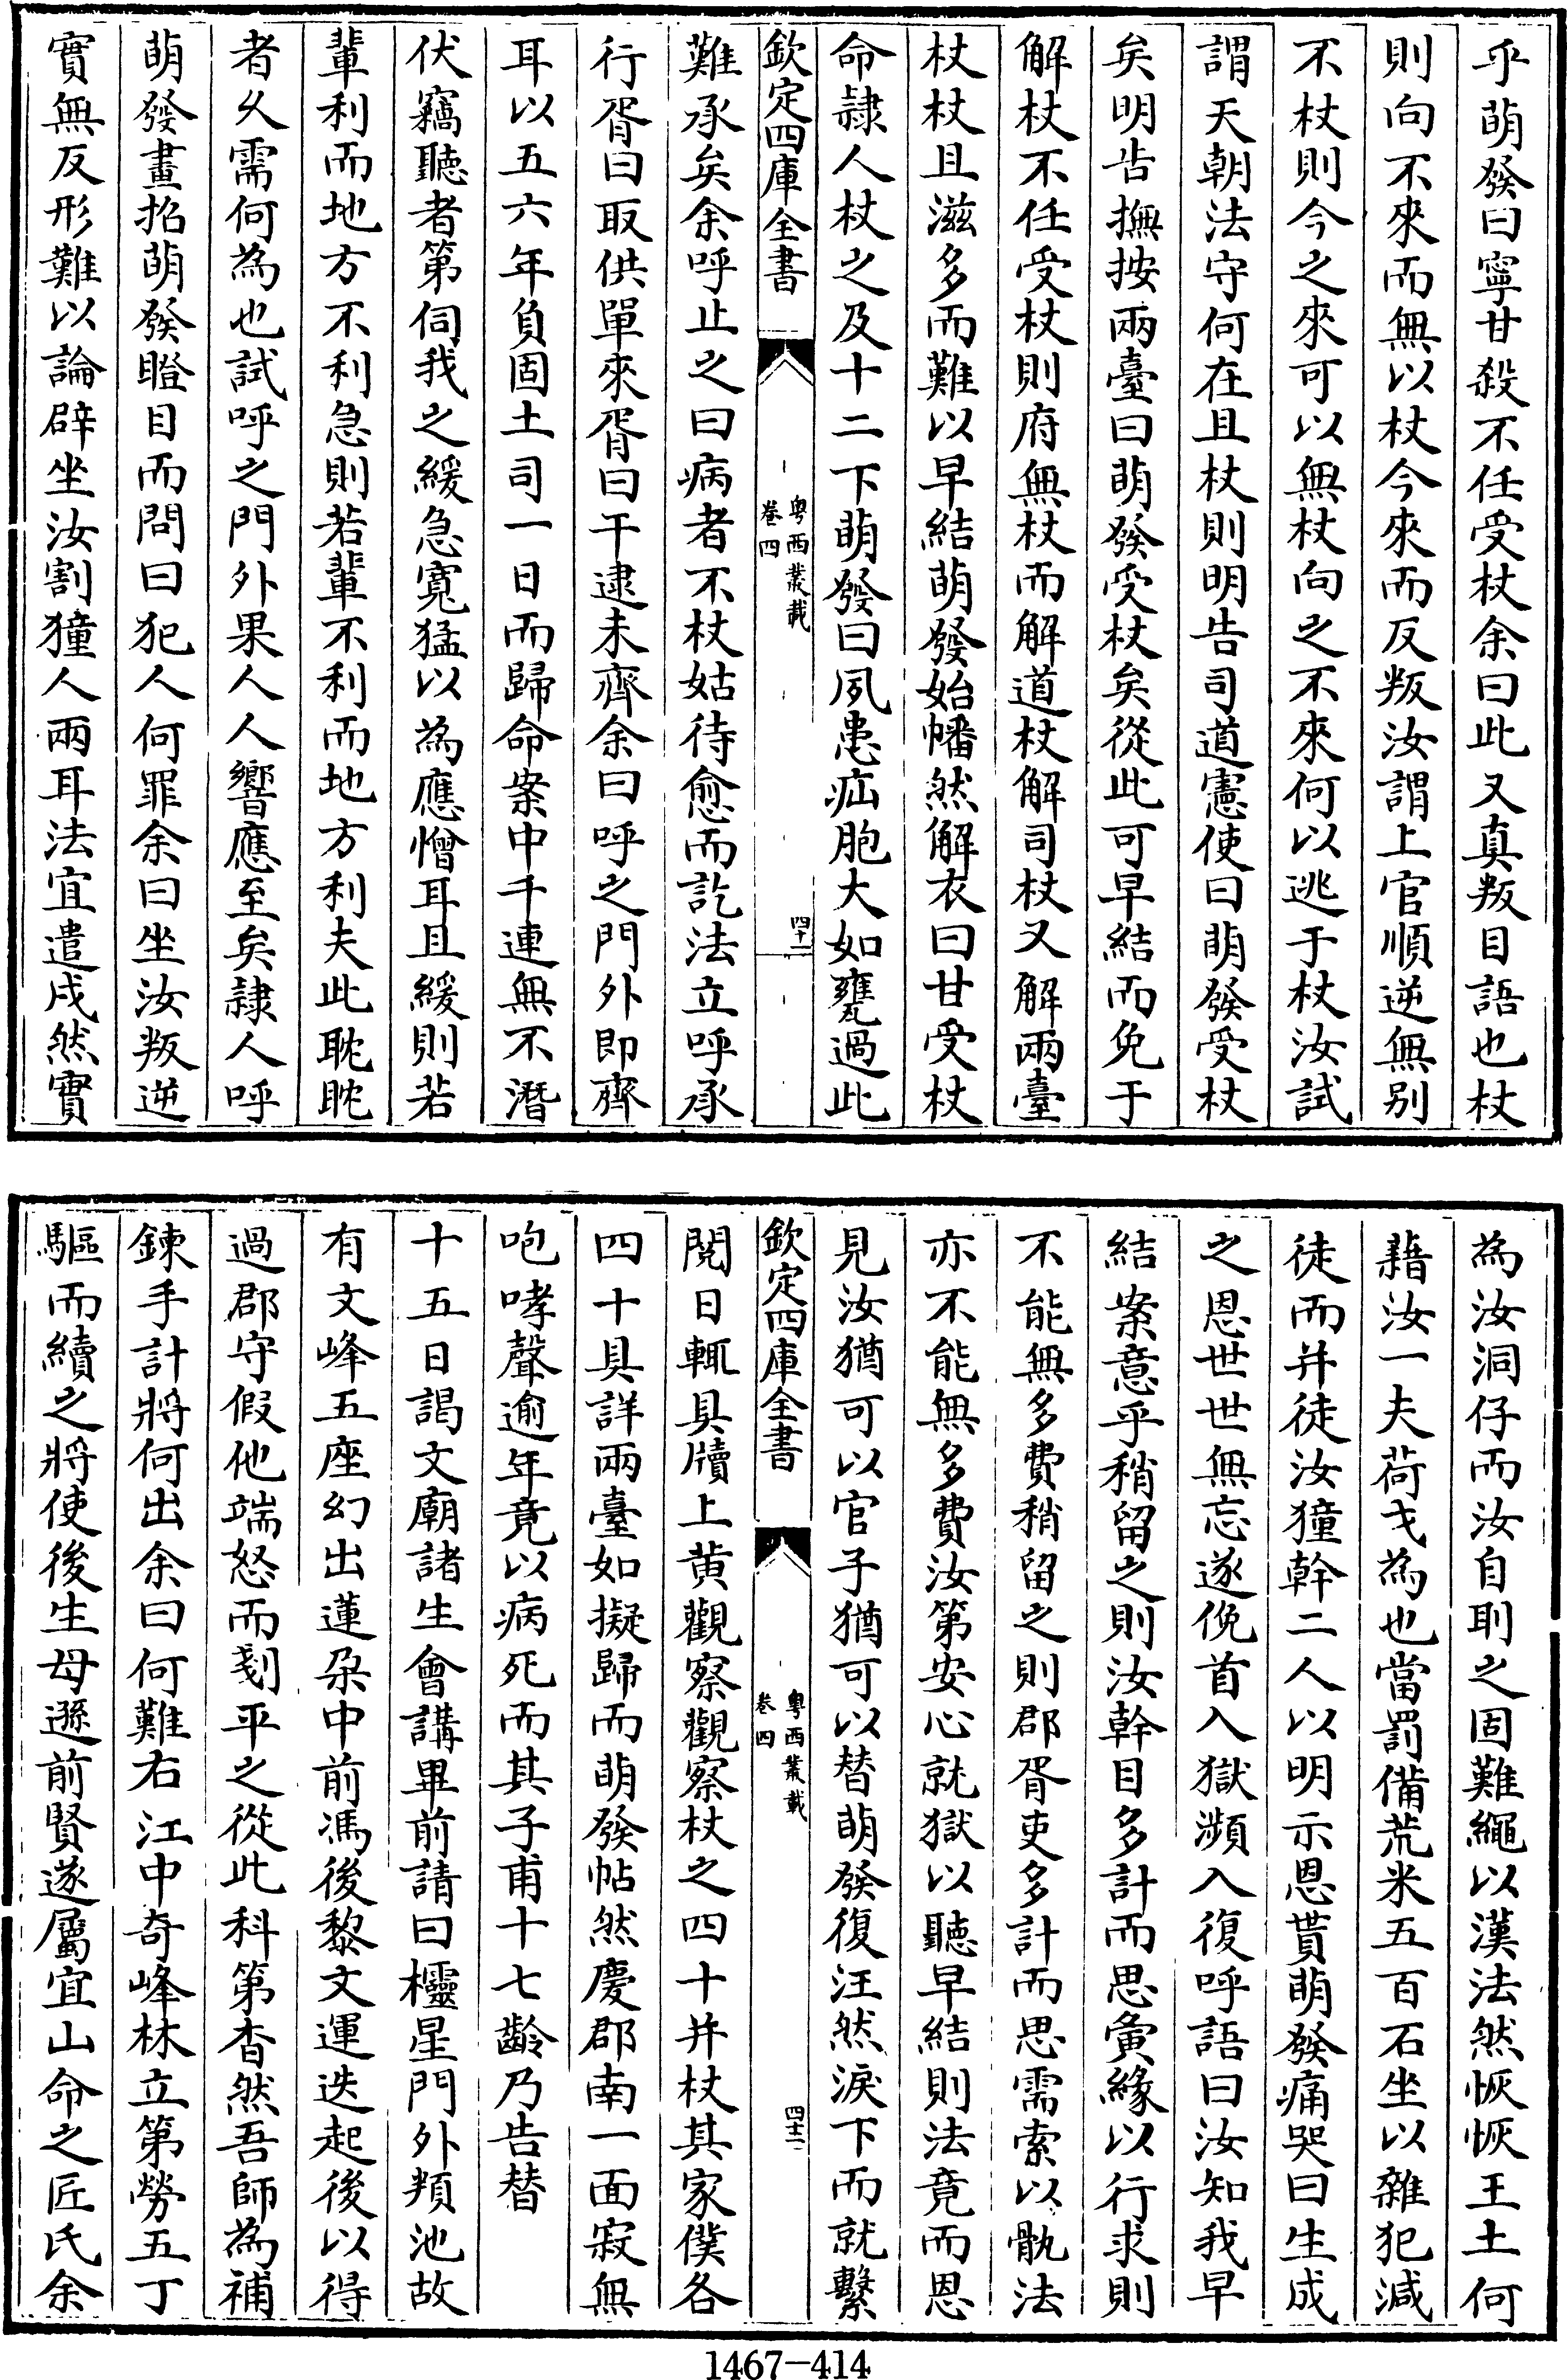 乎萌發曰寧甘殺不任受杖余曰此又真叛目語也杖
則向不來而無以杖今來而反叛汝謂上官順逆無别
不杖則今之來可以無杖向之不來何以逃于杖汝試
謂天朝法守何在且杖則明告司道憲使曰萌發受杖
矣明告撫按兩臺曰萌發受杖矣從此可早結而免于
解杖不任受杖則府無杖而解道杖解司杖又解兩臺
杖杖且滋多而難以早結萌發始幡然解衣曰甘受杖
命隷人杖之及十二下萌發曰夙患疝胞大如甕過此
欽定四庫全書
粤西叢載
卷四
四十一
難承矣余呼止之曰病者不杖姑待愈而訖法立呼承
行胥曰取供單來胥曰干逮未齊余曰呼之門外即齊
耳以五六年負固土司一日而歸命案中千連無不潛
伏竊聽者第伺我之緩急寛猛以為應憎耳且緩則若
輩利而地方不利急則若輩不利而地方利夫此耽耽
者乆需何為也試呼之門外果人人響應至矣隷人呼
萌發畫招萌發瞪目而問曰犯人何罪余曰坐汝叛逆
實無反形難以論辟坐汝割獞人兩耳法宜遣戍然實
為汝洞仔而汝自刵之固難繩以漢法然恢恢王土何
藉汝一夫荷戈為也當罰備荒米五百石坐以雜犯減
徒而并徒汝獞幹二人以明示恩貰萌發痛哭曰生成
之恩世世無忘遂俛首入獄瀕入復呼語曰汝知我早
結案意乎稍留之則汝幹目多計而思夤緣以行求則
不能無多費稍留之則郡胥吏多計而思需索以骫法
亦不能無多費汝第安心就獄以聽早結則法竟而恩
見汝猶可以官子猶可以替萌發復汪然淚下而就繫
欽定四庫全書
粤西叢載
卷四
四十二
閱日輒具牘上黄觀察觀察杖之四十并杖其家僕各
四十具詳兩臺如擬歸而萌發帖然慶郡南一面寂無
咆哮聲逾年竟以病死而其子甫十七齡乃告替
十五日謁文廟諸生會講畢前請曰欞星門外頖池故
有文峰五座幻出蓮朶中前馮後黎文運迭起後以得
過郡守假他端怒而剗平之從此科第杳然吾師為補
鍊手計將何出余曰何難右江中奇峰林立第勞五丁
驅而續之將使後生毋遜前賢遂屬宜山命之匠氏余
1467-414